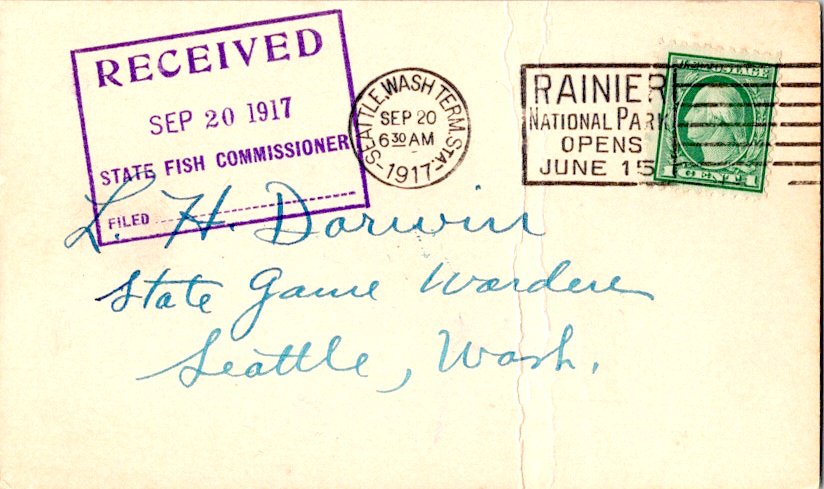 RECEIVED
SEP 20 1917
STATE FISH COMMISSIONER
FILED
SEATTLE, WASH. TERM. STA.
SEP 20
6 30 AM
1917
RAINIER
NATIONAL PARK
OPENS
JUNE 15
U.S. POSTAGE
1 CENT 1
L. H. Darwin
State Game Warden
Seattle, Wash.